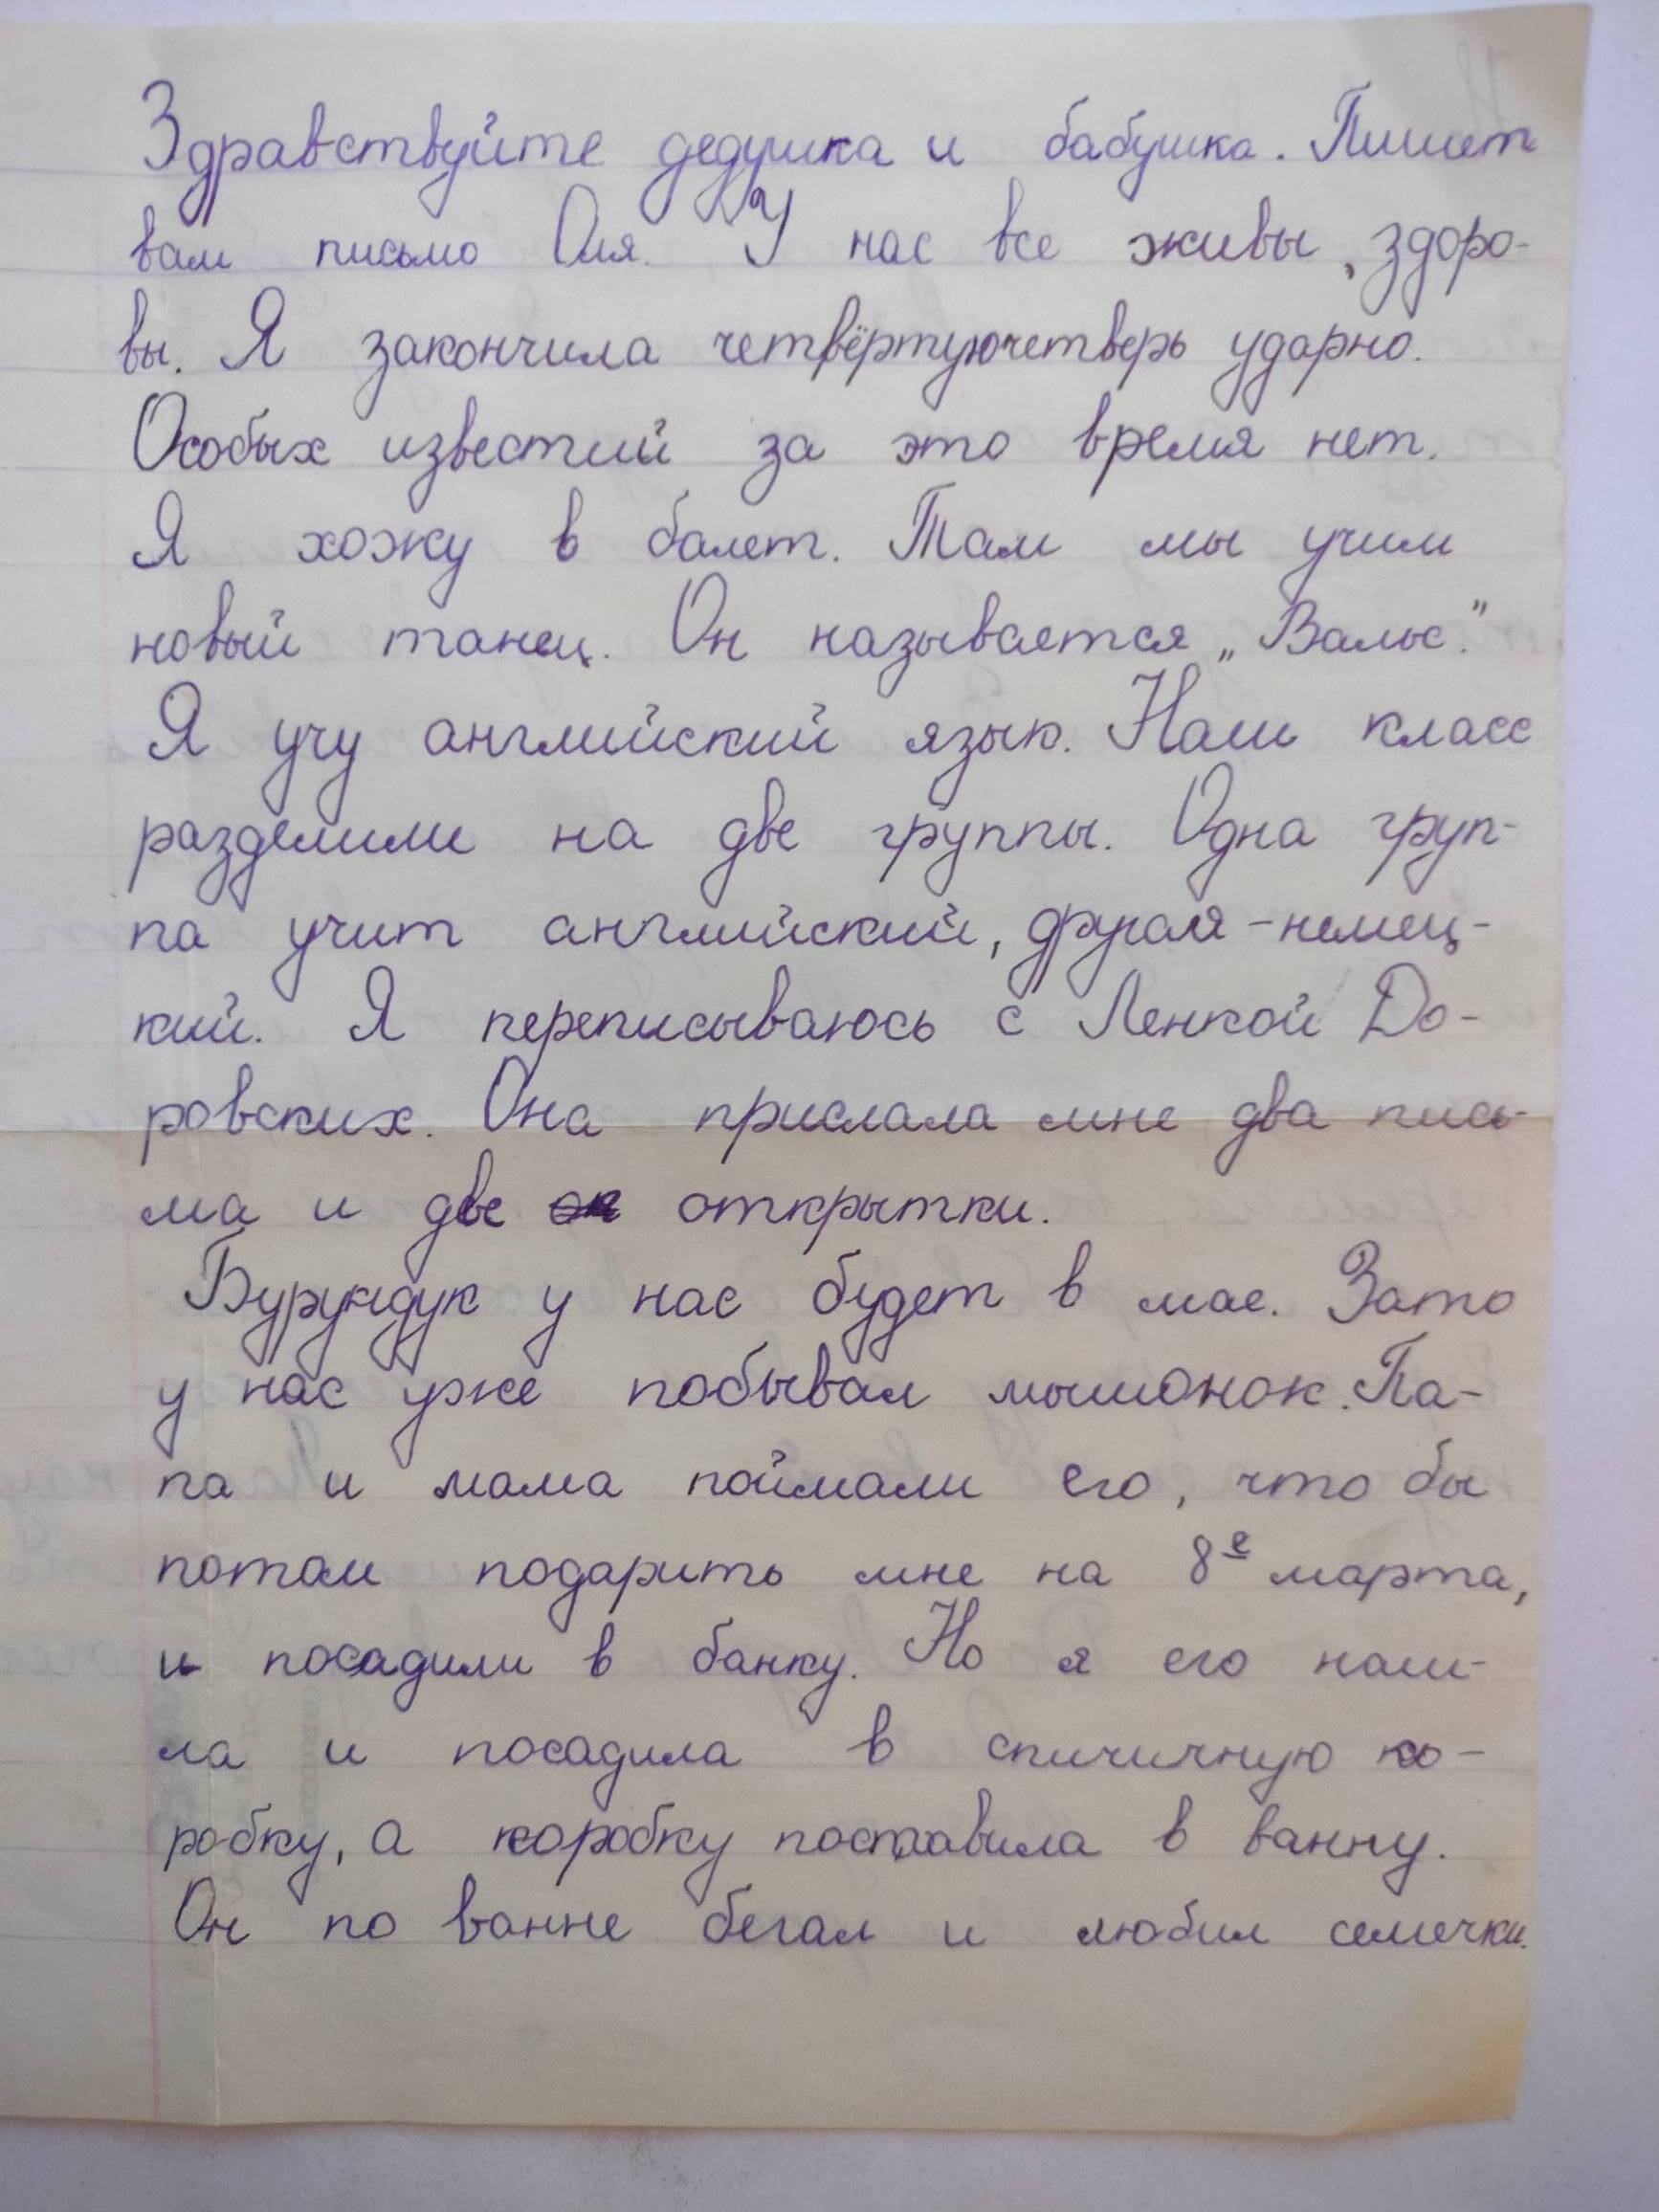 Здравствуйте дедушка и бабушка. Пишет
вам письмо Оля. У нас все живы, здоро-
вы. Я закончила четвёртуючетверь ударно.
Особых известий за это время нет.
Я хожу в балет. Там мы учим
новый танец. Он называется „Вальс".
Я учу английский язык. Наш класс
разделили на две группы. Одна груп-
па учит английский, другая - немец-
кий. Я переписываюсь с Ленкой До-
ровских. Она прислала мне два пись-
ма и две открытки.
Бурундук у нас будет в мае. Зато
у нас уже побывал мышонок. Па-
па и мама поймали его, что бы
потом подарить мне на 8е марта,
и посадили в банку. Но я его наш-
ла и посадила в спичичную ко-
робку, а коробку поставила в ванну.
Он по ванне бегал и любил семечки.